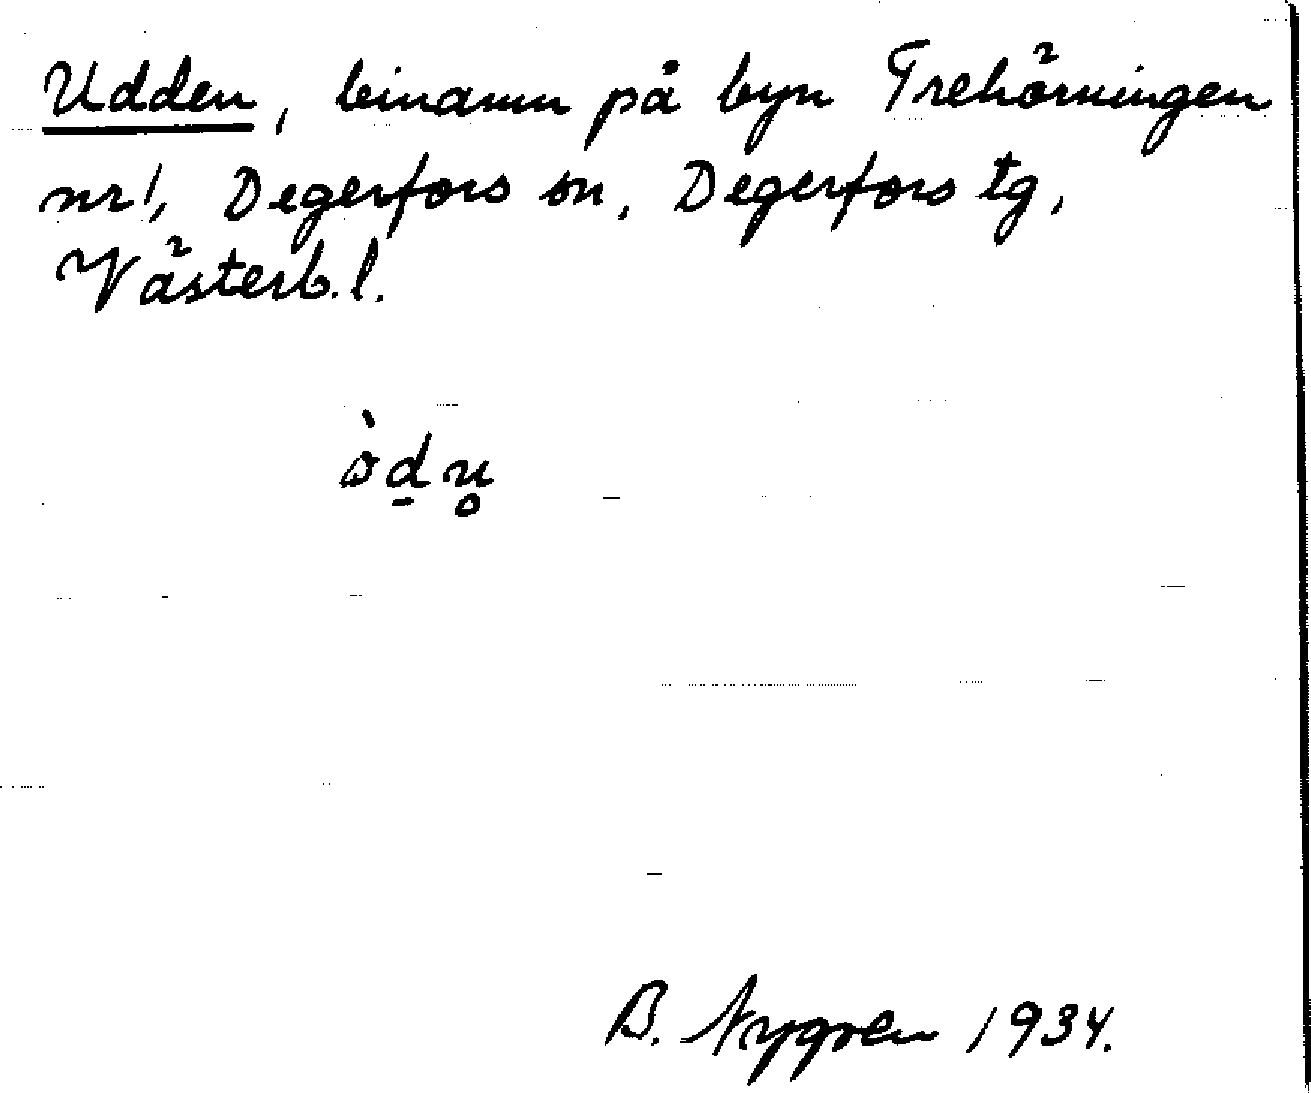 Udden, binamn på byn Trehörningen
nr 1, Degerfors sn, Degerfors tg,
Västerb. l.
òd̠n̥
B. Nygren 1934.